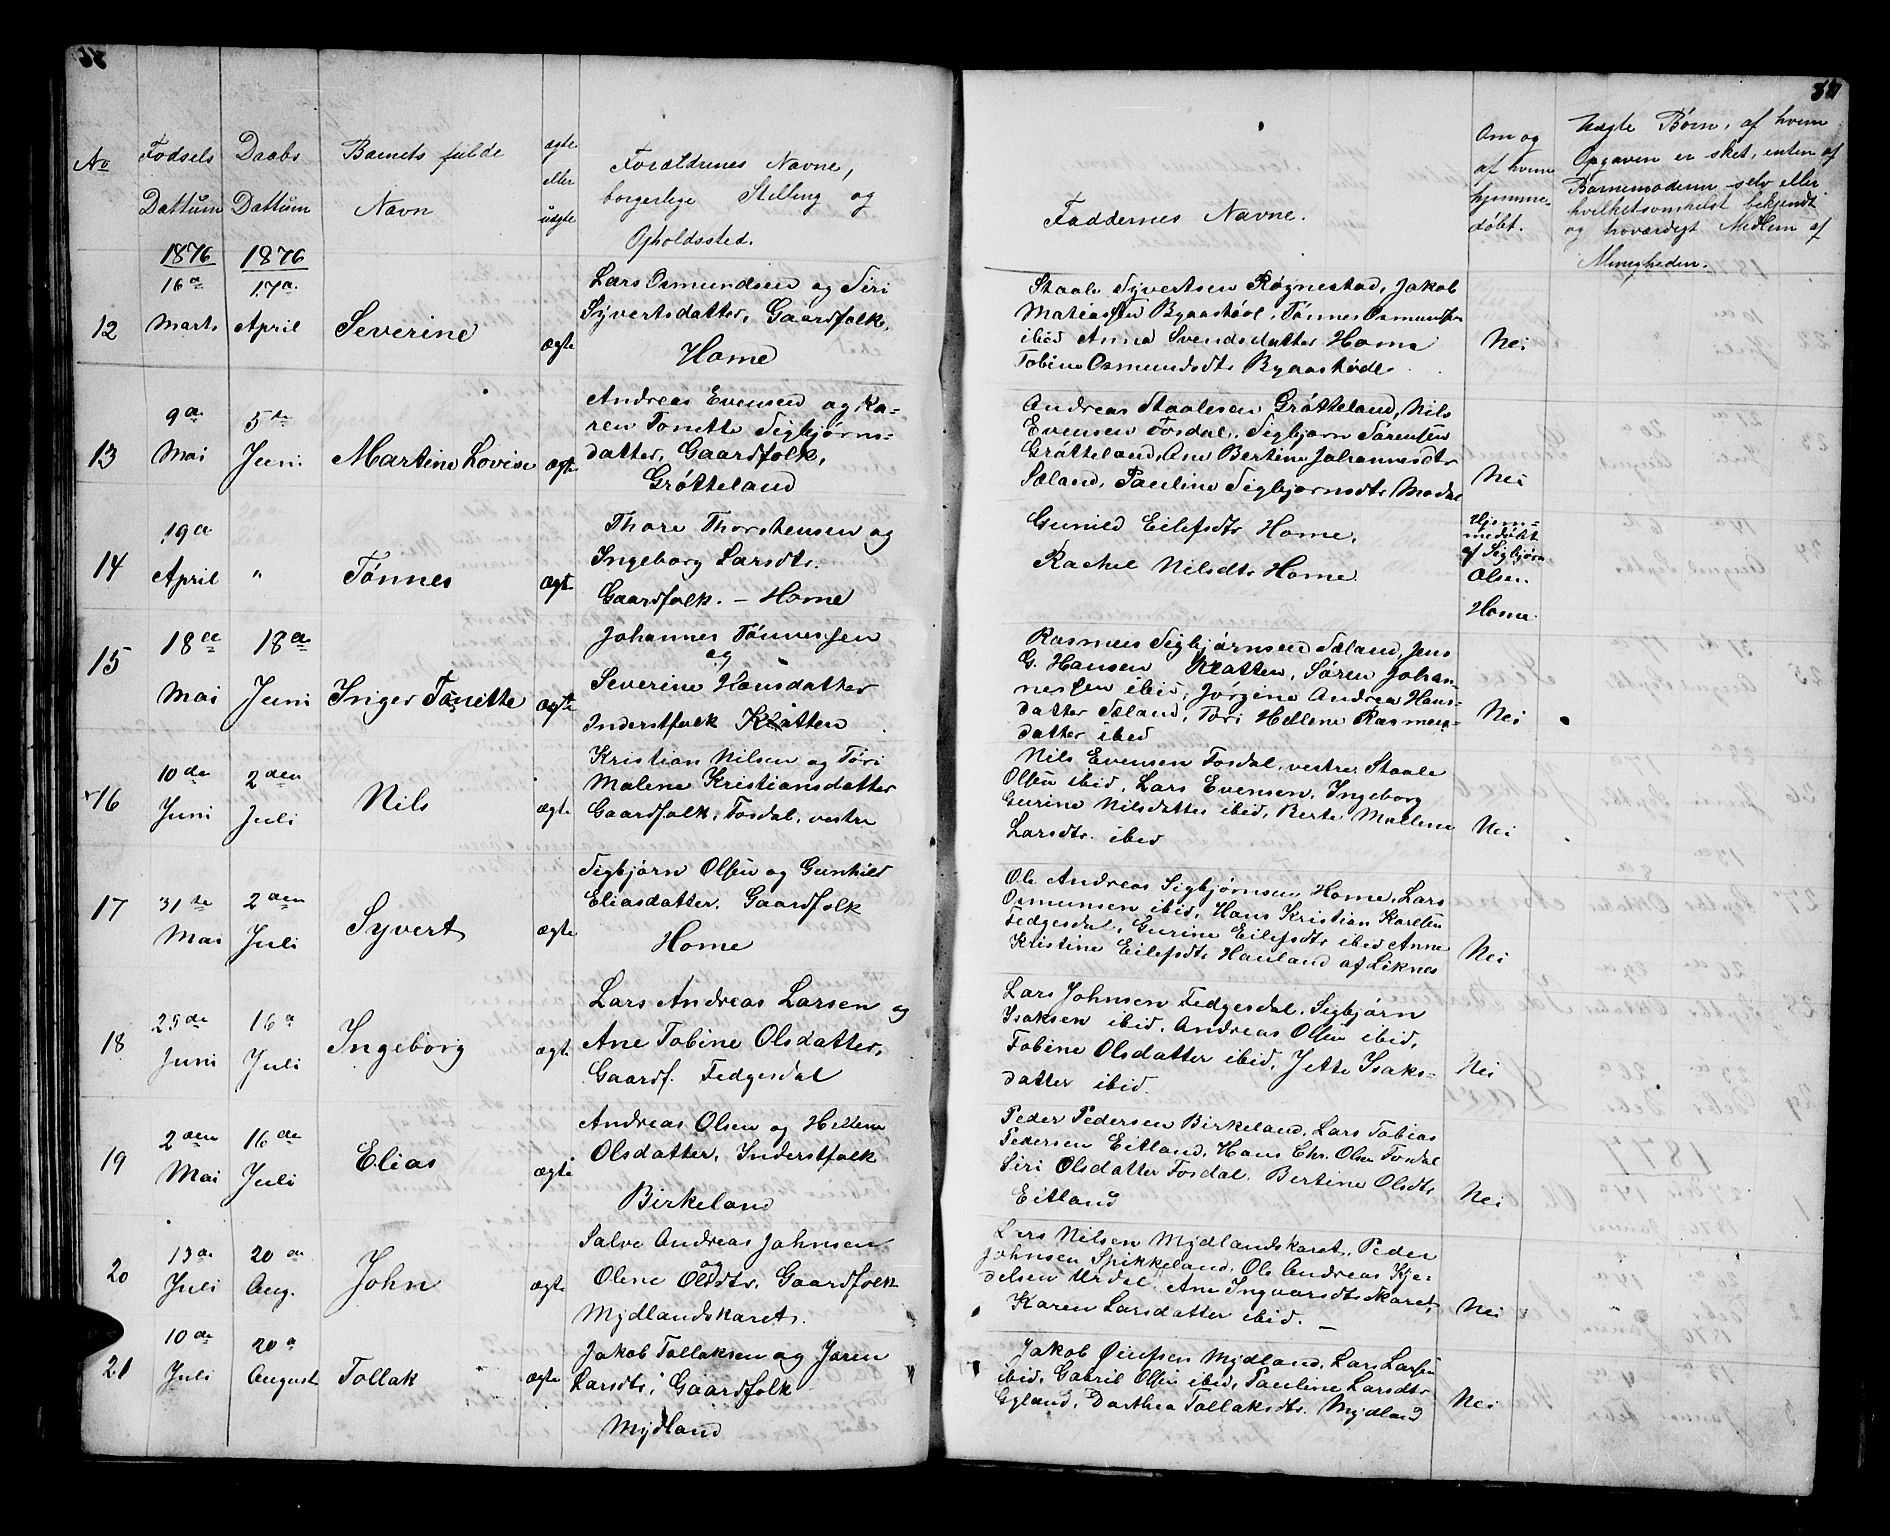 No
Fødsels
Dattum
Daabs
Dattum
Barnets fulde
Navn
ægte
eller
uægte
Forældrenes Navne,
borgerlige Stilling og
Opholdssted.
Faddernes Navne.
Om og
af hvem
hjemme-
døbt.
Uægte Børn, af hvem
Opgaven er sket, enten af
Barnemoderen selv eller
hvilketsomhelst bekjendt
og hoværdigt Medlem af
Menigheden.
1876
1876
12
16de
Marts
17de
April
Severine
ægte
Lars Osmundsen og Siri
Syvertsdatter, Gaardfolk,
Home
Staale Syvertsen Røgnestad, Jakob
Matiassen Bgaastøol, Tønnes Osmundsen
ibid Anna Svendsdatter Home
Tobine Osmundsdt. Bgaastøde
Nei
13
9de
Mai
5te
Juni
Martine Lovise
ægte
Andreas Evensen og Ka-
ren Tonette Sigbjørns-
datter, Gaardfolk,
Grøtteland
Andreas Staalesen Grøtteland, Nils
Evensen Fosdal, Sigbjørn Sørensen
Grøtteland, Ane Bertine Johannesdtr
Sæland, Pauline Sigbjørnsdtr Modal
Nei
14
19de
April
"
Tønnes
ægte
Thore Thorstensen og
Ingeborg Larsdtr.
Gaardfolk. – Home
Gunild Eilefsdtr Home,
Rachel Nilsdtr Home
Hjem-
medøbt
af Sigbjørn
Olsen
Home.
15
18de
Mai
18de
Juni
Inger Tonette
ægte
Johannes Tønnessen
og
Severine Hansdatter
Inderstfolk Klatten
Rasmus Sigbjørnsen Sæland, Jens
G. Hansen Klatten, Søren Johan-
nessen ibid, Jorgine Andrea Hans-
datter Sæland, Tori Hellene Rasmus-
datter ibid
Nei
16
10de
Juni
2den
Juli
Nils
ægte
Kristian Nilsen og Tori
Malene Kristiansdatter
Gaardfolk, Fosdal, vestre
Nils Evensen Fosdal, vestre, Staale
Olsen ibid, Lars Evensen, Ingeborg
Gurine Nilsdatter ibid, Berte Mallene
Larsdtr. ibid
Nei
17
31te
Mai
2den
Juli
Syvert
ægte
Sigbjørn Olsen og Gunhild
Eliasdatter, Gaardfolk
Home
Ole Andreas Sigbjørnsen, Home, Lars
Osmunsen ibid, Hans Kristian Karlsen
Fedgesdal, Gurine Eilefsdtr ibid Anne
Kristine Eilefsdtr Hauland af Liknes
Nei
18
25de
Juni
16de
Juli
Ingeborg
ægte
Lars Andreas Larsen og
Ane Tobine Olsdatter,
Gaardf. Fedgesdal
Lars Johnsen Fedgesdal, Sigbjørn
Isaksen ibid, Andreas Olsen ibid,
Tobine Olsdatter ibid, Jette Isaks-
datter ibid.
Nei
19
2den
Mai
16de
Juli
Elias
ægte
Andreas Olsen og Hellene
Olsdatter, Inderstfolk
Birkeland
Peder Pedersen Birkeland, Lars Tobias
Pedersen Eitland, Hans Chr. Olsen Fosdal
Siri Olsdatter Fosdal, Bertine Olsdtr
Eitland
Nei
20
13de
Juli
20de
Aug.
John
ægte
Salve Andreas Johnsen
og
Olene Olsdtr. Gaardfolk
Mydlandskaret.
Lars Nilsen Mydlandskaret, Peder
Johnsen Spikkeland, Ole Andreas Kje-
delsen Urdal, Ane Ingvarsdtr Skaret,
Karen Larsdatter ibid. –
Nei
21
10de
Juli
20de
August
Tollak
ægte
Jakob Tollaksen og Joren
Larsdtr, Gaardfolk
Mydland
Jakob Øiulfsen Mydland, Lars Larsen
ibid, Gabriel Olsen ibid, Pauline Larsdtr
Gyland, Dorthea Tollaksdtr. Mydland
Nei